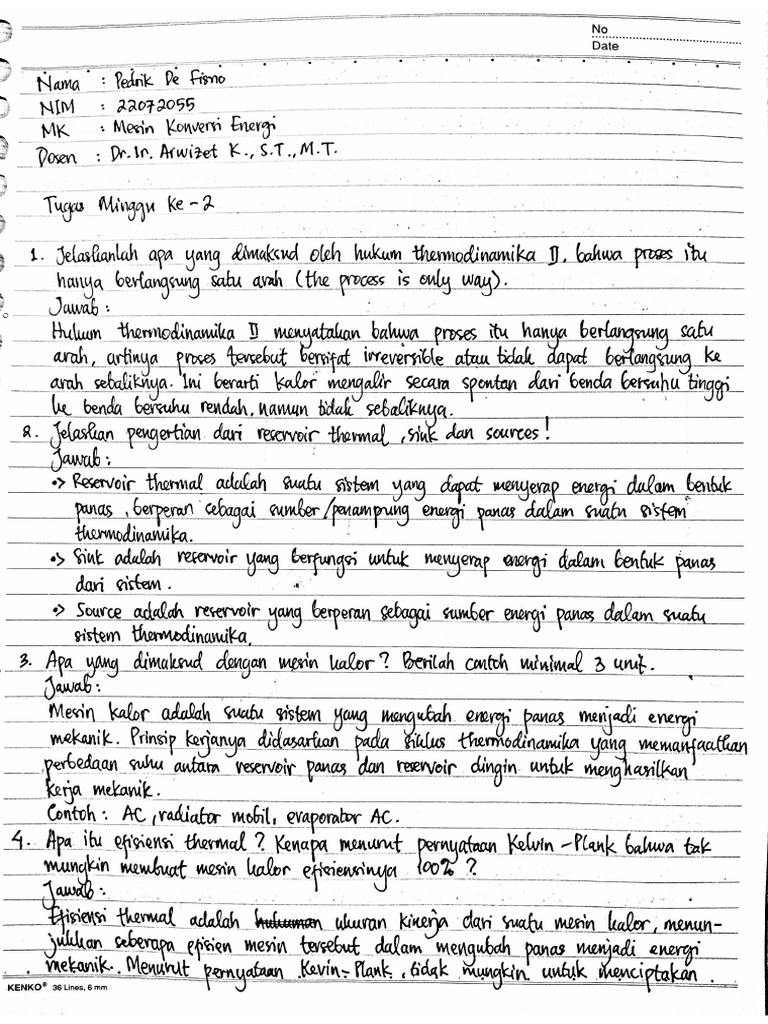 No
Date
Nama : Pedrik De Fisno
NIM : 22072055
MK : Mesin Konversi Energi
Dosen : Dr. Ir. Arwizet K., S.T., M.T.
Tugas Minggu Ke - 2
1. Jelaskanlah apa yang dimaksud oleh hukum thermodinamika II, bahwa proses itu
hanya berlangsung satu arah (the process is only way).
Jawab :
Hukum thermodinamika II menyatakan bahwa proses itu hanya berlangsung satu
arah, artinya proses tersebut bersifat irreversible atau tidak dapat berlangsung ke
arah sebaliknya. Ini berarti kalor mengalir secara spontan dari benda bersuhu tinggi
ke benda bersuhu rendah, namun tidak sebaliknya.
2. Jelaskan pengertian dari reservoir thermal, sink dan sources!
Jawab :
•> Reservoir thermal adalah suatu sistem yang dapat menyerap energi dalam bentuk
panas, berperan sebagai sumber/penampung energi panas dalam suatu sistem
thermodinamika.
•> Sink adalah reservoir yang berfungsi untuk menyerap energi dalam bentuk panas
dari sistem.
•> Source adalah reservoir yang berperan sebagai sumber energi panas dalam suatu
sistem thermodinamika.
3. Apa yang dimaksud dengan mesin kalor? Berilah contoh minimal 3 unit.
Jawab :
Mesin kalor adalah suatu sistem yang mengubah energi panas menjadi energi
mekanik. Prinsip kerjanya didasarkan pada siklus thermodinamika yang memanfaatkan
perbedaan suhu antara reservoir panas dan reservoir dingin untuk menghasilkan
kerja mekanik.
Contoh : AC, radiator mobil, evaporator AC.
4. Apa itu efisiensi thermal? Kenapa menurut pernyataan Kelvin - Plank bahwa tak
mungkin membuat mesin kalor efisiensinya 100%?
Jawab :
Efisiensi thermal adalah ukuran kinerja dari suatu mesin kalor, menun-
jukkan seberapa efisien mesin tersebut dalam mengubah panas menjadi energi
mekanik. Menurut pernyataan Kevin - Plank, tidak mungkin untuk menciptakan
KENKO® 36 Lines, 6 mm